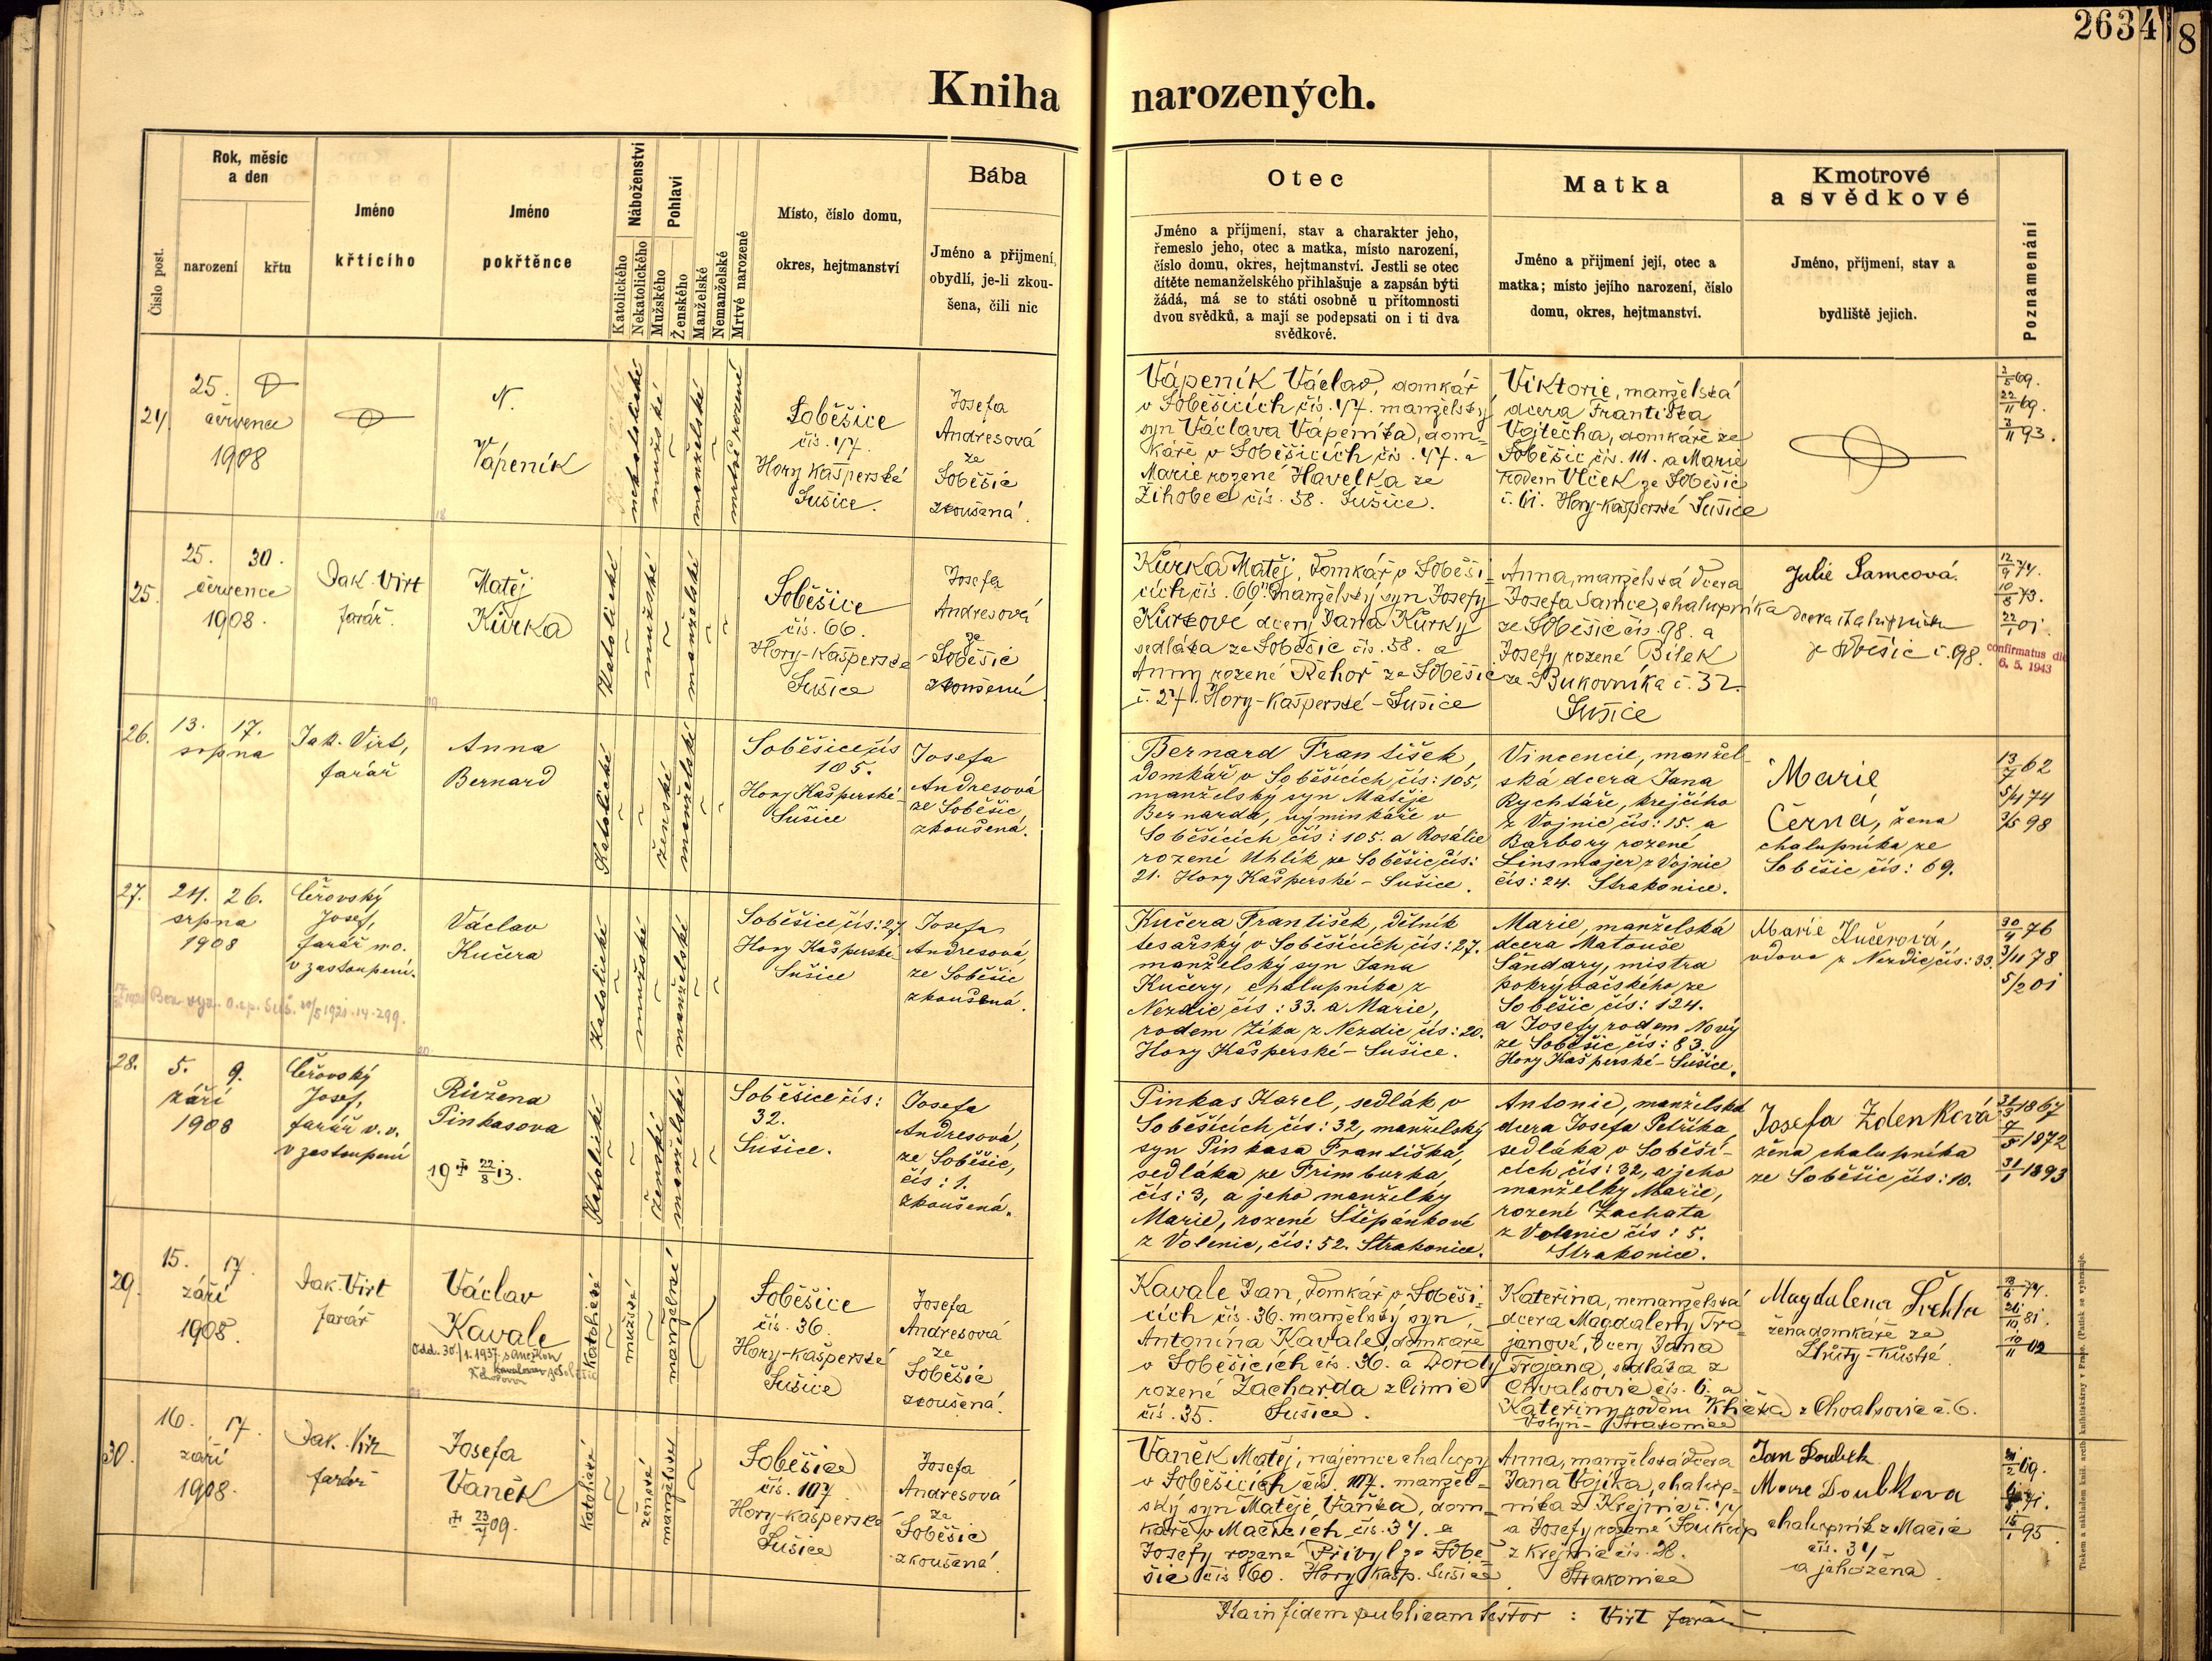 2634
8
Kniha narozených.
Číslo post.
Rok, měsíc
a den
narození
křtu
Jméno
křtícího
Jméno
pokřtěnce
Náboženství
Katolického
Nekatolického
Pohlaví
Mužského
Ženského
Manželské
Nemanželské
Mrtvé narozené
Místo, číslo domu,
okres, hejtmanství
Bába
Jméno a přijmení,
obydlí, je-li zkou-
šena, čili nic
Otec
Jméno a příjmení, stav a charakter jeho,
řemeslo jeho, otec a matka, místo narození,
číslo domu, okres, hejtmanství. Jestli se otec
dítěte nemanželského přihlašuje a zapsán býti
žádá, má se to státi osobně u přítomnosti
dvou svědků, a mají se podepsati on i ti dva
svědkové.
Matka
Jméno a přijmení její, otec a
matka; místo jejího narození, číslo
domu, okres, hejtmanství.
Kmotrové
a svědkové
Jméno, příjmení, stav a
bydliště jejich.
Poznamenání
24
25.
července
1908
N.
Vápeník
nekatolické
mužské
manželské
mrtvě rozené
Soběšice
čís. 47.
Hory Kašperské
Sušice.
Josefa
Andresová
ze
Soběšic
zkoušená.
Vápeník Václav, domkář
v Soběšicích čís. 47. manželský
syn Václava Vápeníka, dom-
káře v Soběšicích čís. 47. a
Marie rozené Havelka ze
Žihobec čís. 58. Sušice.
Viktorie, manželská
dcera Františka
Vojtěcha, domkáře ze
Soběšic čís. 111. a Marie
rodem Vlček ze Soběšic
č. 61. Hory-Kašperské Sušice
2/5 69.
22/11 69.
3/11 93.
25.
25. 30.
července
1908.
Jak. Virt
farář.
Matěj
Kůrka
Katolické
mužské
manželské
Soběšice
čís. 66.
Hory-Kašperské
Sušice
Josefa
Andresová
ze
Soběšic
zkoušená
Kůrka Matěj, domkář v Soběši-
cích čís. 66. manželský syn Josefy
Kůrkové dcery Jana Kůrky
sedláka ze Soběšic čís. 58. a
Anny rozené Řehoř ze Soběšic
č. 27. Hory-Kašperské-Sušice
Anna, manželská dcera
Josefa Samce, chalupníka
ze Soběšic čís. 98. a
Josefy rozené Bílek
ze Bukovníka č. 32.
Sušice
Julie Samcová.
dcera chalupníka
ze Soběšic č. 98.
12/9 74.
10/8 73.
22/1 01.
confirmatus die
6. 5. 1943
26.
13. 17.
srpna
Jak. Virt,
farář
Anna
Bernard
Katolické
ženské
manželské
Soběšice čís
105.
Hory Kašperské-
Sušice
Josefa
Andresová
ze Soběšic
zkoušená.
Bernard František,
domkář v Soběšicích čís: 105,
manželský syn Matěje
Bernarda, výminkáře v
Soběšicích čís: 105. a Rosálie
rozené Uhlík ze Soběšic čís:
21. Hory Kašperské-Sušice.
Vincencie, manžel-
ská dcera Jana
Rychtáře, krejčího
z Vojnic čís: 15. a
Barbory rozené
Linsmajer z Vojnic
čís: 24. Strakonice.
Marie
Černá, žena
chalupníka ze
Soběšic čís: 69.
13/7 62
5/4 74
3/5 98
27.
24. 26.
srpna
1908
Čeřovský
Josef,
farář m o.
v zastoupení.
Václav
Kučera
Katolické
mužské
manželské
Soběšice čís: 27
Hory Kašperské
Sušice
Josefa
Andresová,
ze Soběšic
zkoušená.
Kučera František, dělník
tesařský v Soběšicích čís: 27.
manželský syn Jana
Kučery, chalupníka z
Nezdic čís: 33. a Marie,
rodem Zíka z Nezdic čís: 20.
Hory Kašperské-Sušice.
Marie, manželská
dcera Matouše
Šandary, mistra
pokryvačského ze
Soběšic čís: 124.
a Josefy rodem Nový
ze Soběšic čís: 83.
Hory Kašperské-Sušice.
Marie Kučerová,
vdova z Nezdic čís: 33.
30/4 76
3/11 78
5/2 01
28.
5. 9.
září
1908
Čeřovský
Josef,
farář v. v.
v zastoupení
Růžena
Pinkasova
19 ‡ 22/8 13.
Katolické
ženské
manželské
Soběšice čís:
32.
Sušice.
Josefa
Andresová,
ze Soběšic,
čís: 1.
zkoušená.
Pinkas Karel, sedlák v
Soběšicích čís: 32, manželský
syn Pinkasa Františka,
sedláka ze Frimburka,
čís: 3, a jeho manželky
Marie, rozené Štěpánkové
z Volenic, čís: 52. Strakonice.
Antonie, manželská
dcera Josefa Petříka,
sedláka v Soběši-
cích čís: 32, a jeho
manželky Marie,
rozené Zachata
z Volenic čís: 5.
Strakonice.
Josefa Zdenková
žena chalupníka
ze Soběšic čís: 10.
31/3 1867
7/5 1872
31/1 1893
29.
15. 17.
září
1908.
Jak. Virt
farář
Václav
Kavale
Katolické
mužské
manželské
Soběšice
čís. 36.
Hory-Kašperské
Sušice
Josefa
Andresová
ze
Soběšic
zkoušená.
Kavale Jan, domkář v Soběši-
cích čís. 36. manželský syn
Antonína Kavale, domkáře
v Soběšicích čís. 36. a Doroty
rozené Zacharda z Čimic
čís. 35. Sušice.
Kateřina, nemanželská
dcera Magdaleny Tro-
janové, dcery Jana
Trojana, sedláka z
Chvalšovic čís. 6. a
Kateřiny rodem
z Chvalšovic č. 6.
Volyň-Strakonice
Magdalena
žena domkáře ze
30.
16. 17.
září
1908.
Jak. Virt
farář
Josefa
Vaněk
‡ 23/7 09.
Katolické
ženské
manželské
Soběšice
čís. 107
Hory-Kašperské
Sušice
Josefa
Andresová
ze
Soběšic
zkoušená.
Vaněk Matěj, nájemce chalupy
v Soběšicích čís. 107. manžel-
ský syn Matěje Vaňka, dom-
káře v Mačicích čís. 34. a
Josefy rozené Přibyl ze Sobě-
šic čís. 60. Hory Kašp. Sušice
Anna, manželská dcera
Jana Vojíka, chalup-
níka z Krejnic č. 14
a Josefy rozené Soukup
z Krejnic čís. 28.
Strakonice
Jan Doubek
Marie Doubkova
chalupník z Mačic
čís. 34
a jeho žena.
15/1 95
In fidem publicam testor : Virt farář
Tiskem a nákladem kníž. arcib. knihtiskárny v Praze. (Patisk se vyhrazuje.